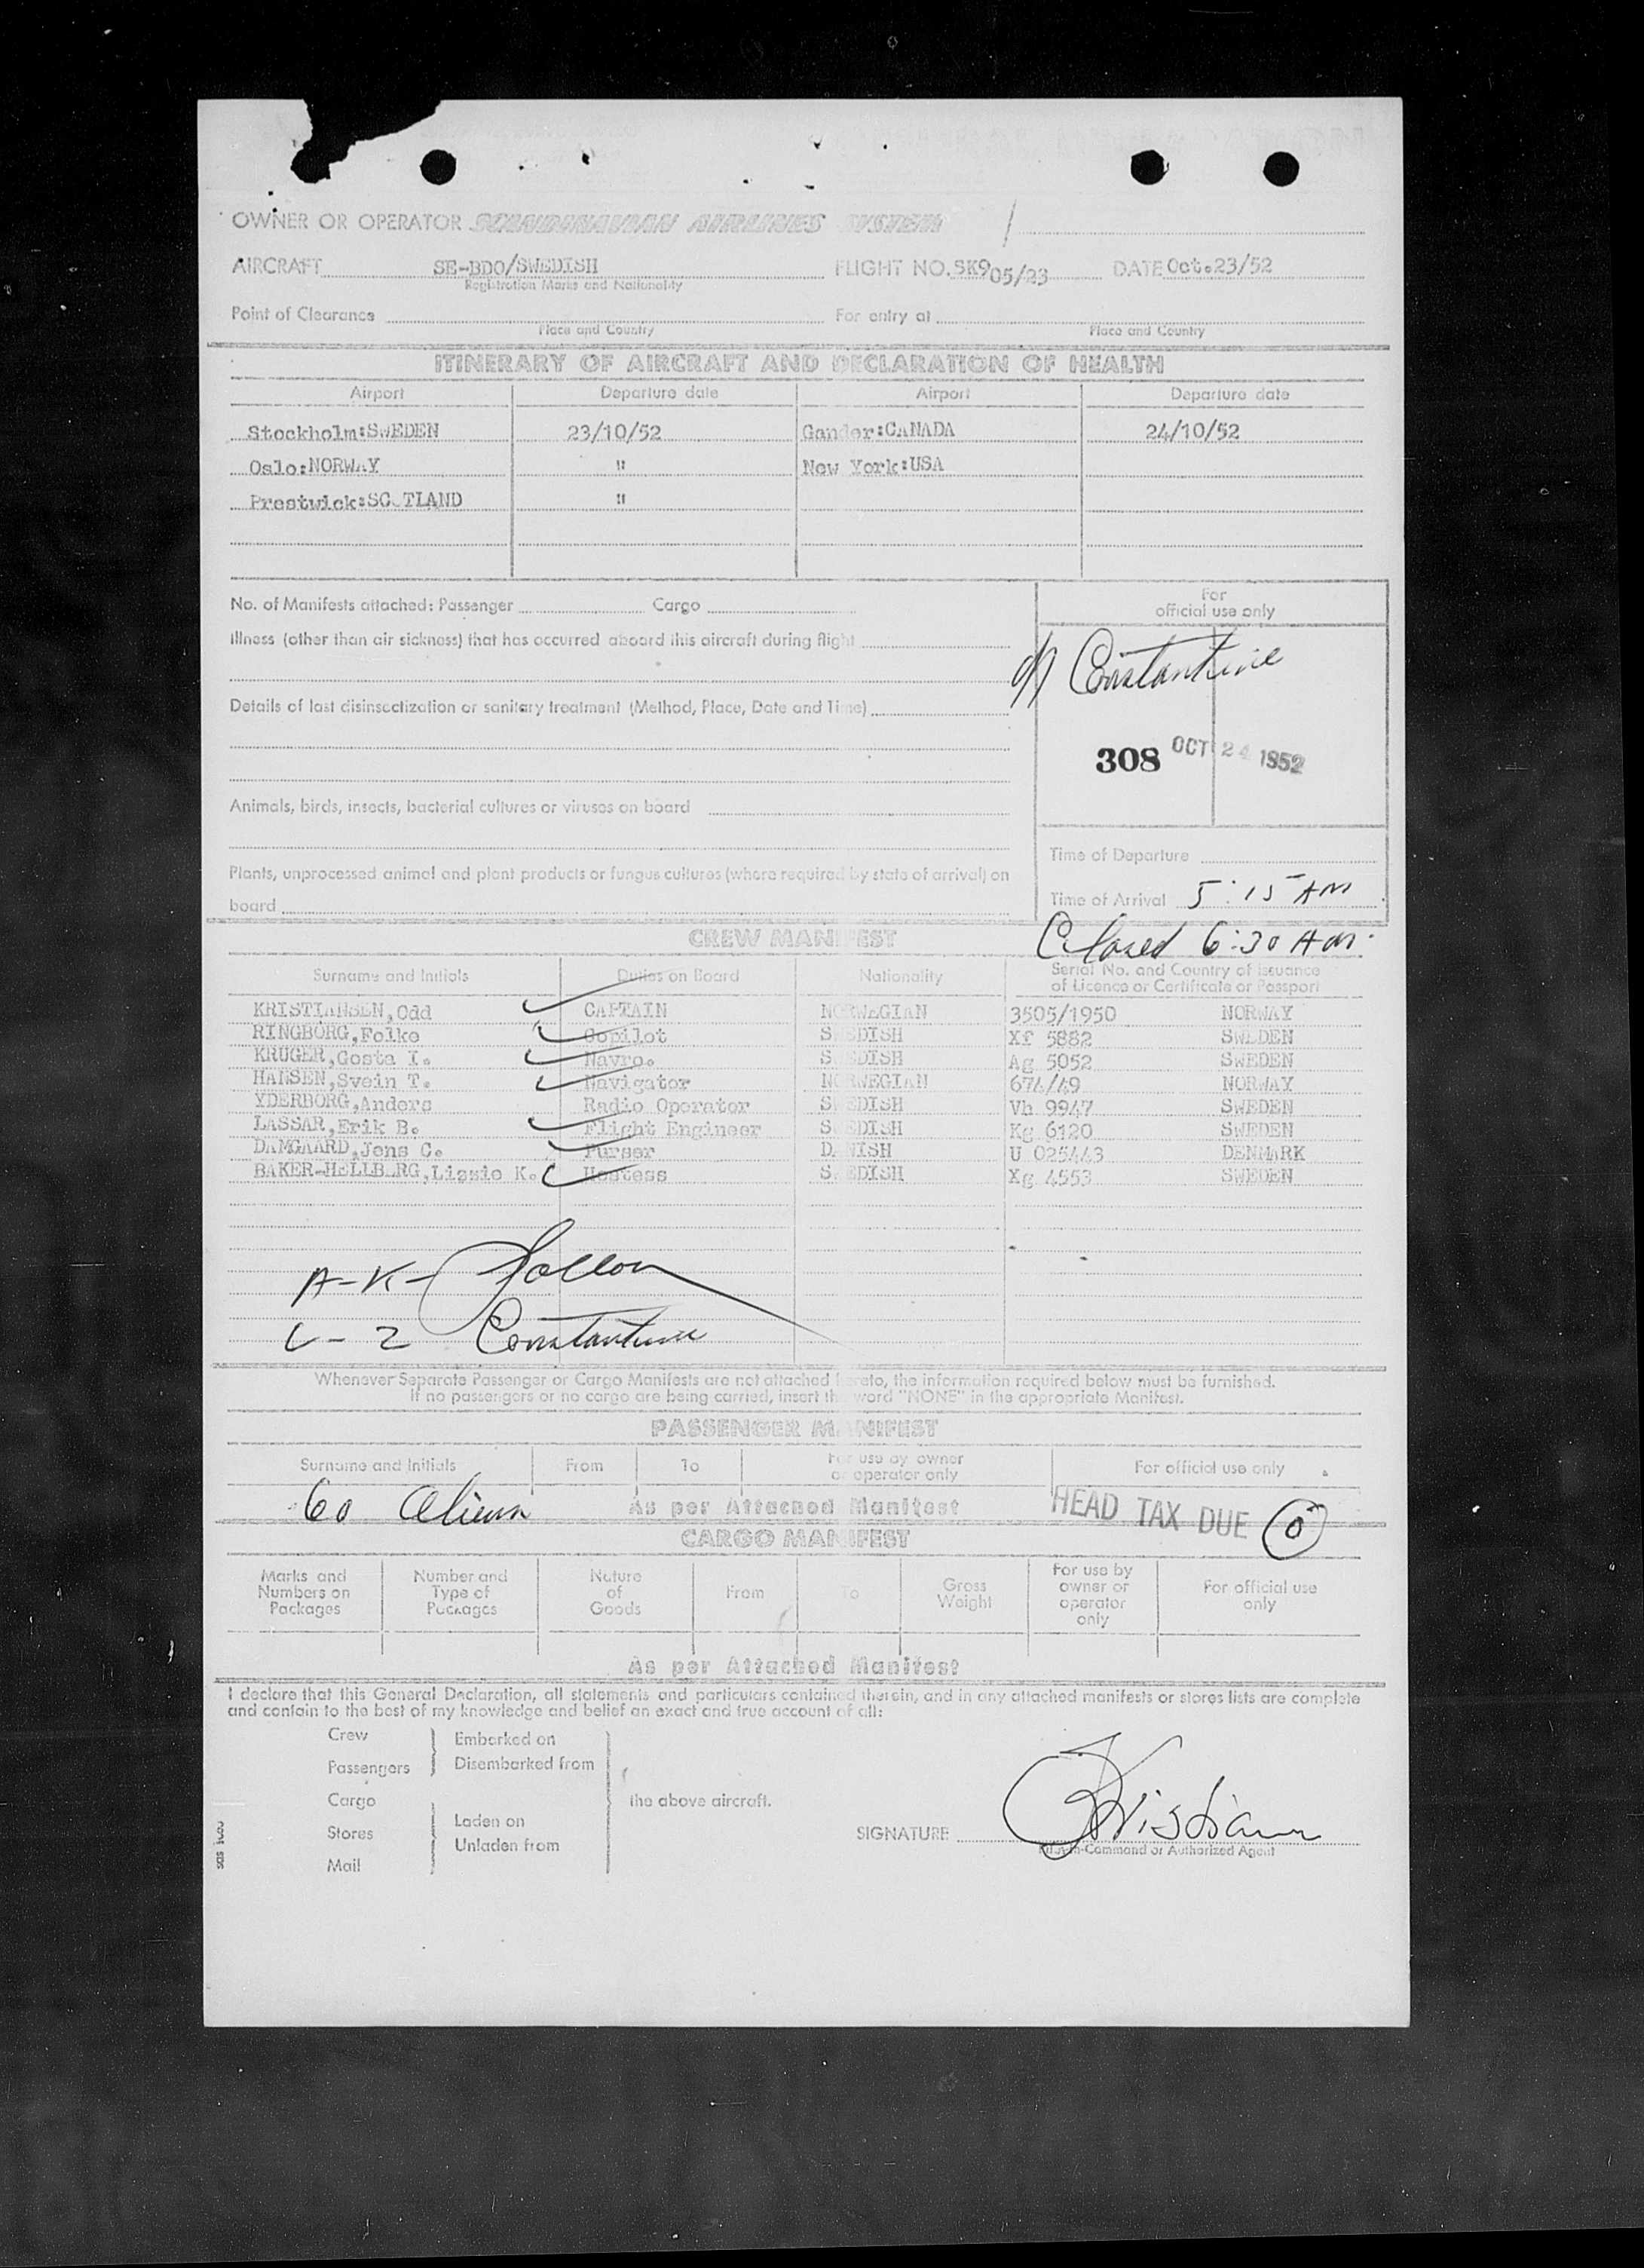 OWNER OR OPERATOR SCANDINAVIAN AIRLINES SYSTEM
AIRCRAFT SE-BDO/SWEDISH FLIGHT NO. SK905/23 DATE Oct.23/52
Registration Marks and Nationality
Point of Clearance For entry at
Place and Country Place and Country
ITINERARY OF AIRCRAFT AND DECLARATION OF HEALTH
Airport Departure date Airport Departure date
Stockholm:SWEDEN 23/10/52 Gander:CANADA 24/10/52
Oslo:NORWAY " New York:USA
Prestwick:SCOTLAND "
No. of Manifests attached: Passenger Cargo
For
official use only
Illness (other than air sickness) that has occurred aboard this aircraft during flight
Constantine
Details of last disinsectization or sanitary treatment (Method, Place, Date and Time)
308 OCT 24 1952
Animals, birds, insects, bacterial cultures or viruses on board
Time of Departure
Plants, unprocessed animal and plant products or fungus cultures (where required by state of arrival) on
board
Time of Arrival 5:15 AM
Closed 6:30 AM.
CREW MANIFEST
Surname and Initials Duties on Board Nationality Serial No. and Country of issuance
of Licence or Certificate or Passport
KRISTIANSEN,Odd CAPTAIN NORWEGIAN 3505/1950 NORWAY
RINGBORG,Folke Copilot SWEDISH Xf 5882 SWEDEN
KRUGER,Gosta I. Navro. SWEDISH Ag 5052 SWEDEN
HANSEN,Svein T. Navigator NORWEGIAN 674/49 NORWAY
YDERBORG,Anders Radio Operator SWEDISH Vh 9947 SWEDEN
LASSAR,Erik B. Flight Engineer SWEDISH Kg 6120 SWEDEN
DAMGAARD,Jens C. Purser DANISH U 025443 DENMARK
BAKER-HELLBERG,Lizzie K. Hostess SWEDISH Xg 4553 SWEDEN
A-K-
L-Z Constantine
Whenever Separate Passenger or Cargo Manifests are not attached hereto, the information required below must be furnished.
If no passengers or no cargo are being carried, insert the word "NONE" in the appropriate Manifest.
PASSENGER MANIFEST
Surname and Initials From To For use by owner
or operator only For official use only
60 Aliens As per Attached Manifest HEAD TAX DUE 0
CARGO MANIFEST
Marks and
Numbers on
Packages Number and
Type of
Packages Nature
of
Goods From To Gross
Weight For use by
owner or
operator
only For official use
only
As per Attached Manifest
I declare that this General Declaration, all statements and particulars contained therein, and in any attached manifests or stores lists are complete
and contain to the best of my knowledge and belief an exact and true account of all:
Crew Embarked on
Passengers Disembarked from
Cargo the above aircraft.
Stores Laden on
Mail Unladen from
SIGNATURE
Pilot-in-Command or Authorized Agent